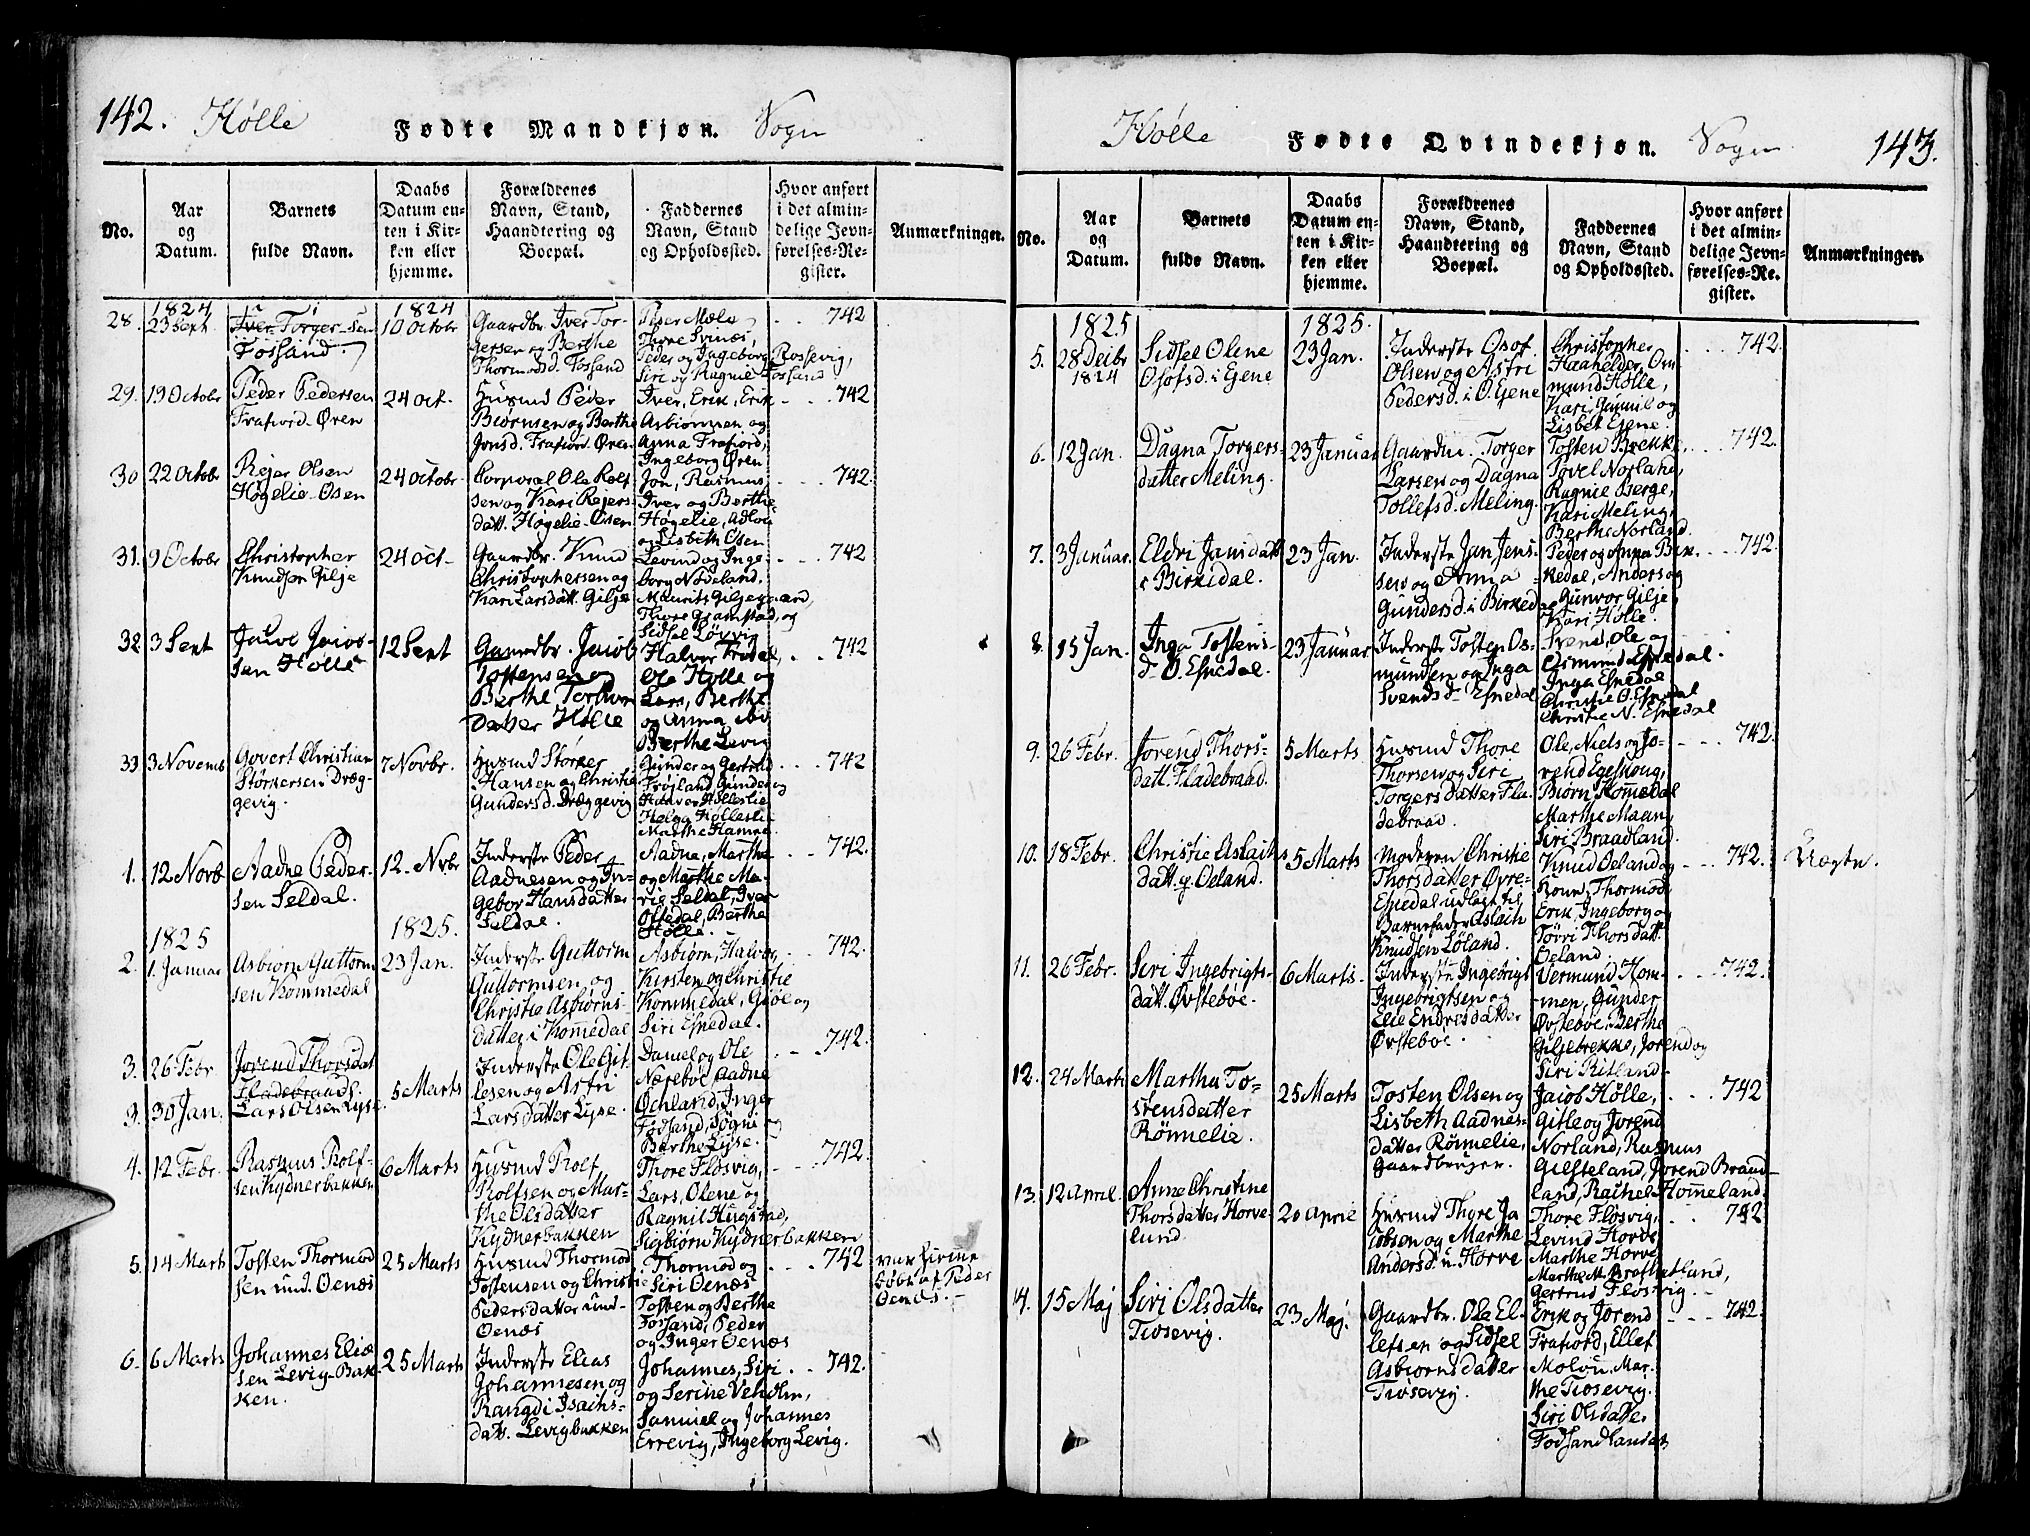 142. Hølle Fødte Mandkjøn. Sogn
No.
Aar
og
Datum.
Barnets
fulde Navn.
Daabs
Datum en-
ten i Kir-
ken eller
hjemme.
Forældrenes
Navn, Stand,
Haandtering og
Boepæl.
Faddernes
Navn, Stand
og Opholdssted.
Hvor anført
i det almin-
delige Jevn-
førelses-Re-
gister.
Anmærkninger.
28.
1824
23 Sept.
Iver Torger-sen
Fossand.
1824
10 Octobr
Gaardbr. Iver Tor-
gersen og Berthe
Thormodsd. Fossand
Peder Mæle
Thore Svinæs,
Peder og Ingeborg Rossevig,
Siri og Ragnie Fossand
742
29.
19 Octobr
Peder Pedersen
Frafiord-Øren
24 Oct.
Husmd Peder
Biørnsen og Berthe
Jonsd. Frafiord-Øren
Iver, Erik, Erik
Asbiørnsen og
Anna Frafiord,
Ingeborg Øren
742
30
22 Octobr
Rejer Olsen
Høgelie-Øsen
24 Octobr
Corporal Ole Rolf-
sen og Kari Rejers-
datt. Høgelie-Øsen
Jon, Rasmus
Iver og Berthe
Høgelie, Adlou
og Lisbeth Øsen
742.
31.
9 Octobr
Christopher
Knudsen Gilje
24 Oct.
Gaardbr. Knud
Christophersen og
Kari Larsdatt. Gilje
Levind og Inge-
borg Nødeland,
Maurits Giljegiærd,
Thore Gramstad, og
Sidsel Løvvig
742
32
3 Sept
Jacob Jacob-
sen Hølle
12 Sept
Gaardbr. Jacob
Tostensen og
Berthe Torbiørns
Datter Hølle
Halvor Frødal,
Ole Hølle og
Lars, Berthe
og Anna
Berthe Levig
742
33
3 Novemb
Govert Christian
Størkersen Dræg-
gevig.
7 Novbr.
Husmd Størker
Hansen og Christie
Gundersd. Dræggevig
Gunder og Gertrud
Frøjland, Gunder og
HaaverØlleslie
Helga Hølleslie
Marthe Hamre
742
1.
12 Novb
Aadne Peder-
sen Seldal.
12 Nvbr
Inderste Peder
Aadnesen og In-
gebor Hansdatter
Seldal.
Aadne, Marthe
og Marthe Ma-
rie Seldal, Iver
Oltedal, Berthe
Hølle.
742.
2.
1825
1. Januar
Asbiørn Guttorm
sen Kommedal
1825.
23 Jan.
Inderste Guttorm
Guttormsen og
Christie Asbiørns-
datter i Kommedal
Asbiørn, Halvor,
Kirsten og Christie
Kommedal, Giøe og
Siri Efnedal.
742.
3.
26 Febr
Jorend Thorsdat
Fladebraads.
3.
30 Jan.
Lars Olsen Lyse.
5 Marts
Inderste Ole Git-
lesen og Astri
Larsdatter Lyse.
Daniel og Ole
Nærebøe Aadne
Ochland, Inger
Fossand, Søgni og
Barthe Lyse.
742.
4.
12 Febr.
Rasmus Rolf-
sen Kydnerbakken
6 Marts
Husmd Rolf
Rolfsen og Mar-
the Olsdatter
Kydnerbakken
Thore Fløsvig,
Lars, Olene og
Ragnil Hugstad,
Sigbiørn Kydnerbakken
742.
5.
14 Marts
Tosten Thormod
sen und. Oenæs
25 Marts
Husmd Thormod
Tostensen og Christie
Pedersdatter und-
Oenæs
Thormod og
Siri Oenæs
Tosten og Berthe
Fossand, Peder
og Inger Oenæs
742
var hjeme
døbt af Peder
Oenæs.
6.
6 Marts
Johannes Elia
sen Levig-Bak
ken.
25 Marts
Inderste Elias
Johannesen og
Rangdi Isachs-
datt. Levigbakken
Johannes, Siri
og Serine Veholm,
Samuel og Johannes
Errevig, Ingeborg Levig.
742.
Hølle Fødte Qvindekjøn. Sogn 143.
No.
Aar
og
Datum.
Barnets
fulde Navn.
Daabs
Datum en-
ten i Kir-
ken eller
hjemme.
Forældrenes
Navn, Stand,
Haandtering og
Boepæl.
Faddernes
Navn, Stand
og Opholdssted.
Hvor anført
i det almin-
delige Jevn-
førelses-Re-
gister.
Anmærkninger.
5.
1825
28 Decbr
1824
Sidsel Olene
Osofsd. i Ejene
1825.
23 Jan.
Inderste Osof
Olsen og Astri
Pedersd. i O. Ejene
Christopher
Haahelder, Om
mund Hølle,
Kari, Gunnil og
Lisbet Ejene.
742.
6.
12 Jan.
Dagna Torgers-
datter Meling.
23 Januar
Gaardm. Torger
Larsen og Dagna
Tollefsd. Meling.
Tosten Brekke
Tovel Norland,
Ragnie Berge,
Kari Meling,
Berthe Norland.
742.
7.
3 Januar.
Eldri Jansdatt
i Birkedal.
23 Jan.
Inderste Jan Jens-
sen og Anna
Gundersd. i Birkedal
Peder og Anna Bir-
kedal, Anders og
Gunvor Gilje,
Kari Hølle.
742.
8.
15 Jan.
Inga Tostens-
dr O. Efnedal.
23 Januar
Inderste Tosten Os-
mundsen og Inga
Svendsdr Efnedal
Svend, Ole og
Osmund Efnedal.
Inga Efnedal
Christie O. Efnedal
Christie N. Efnedal
9.
26 Febr.
Jorend Thors-
datt. Fladebraad.
5 Marts
Husmd Thore
Thorsen og Siri
Torgersdatter Fla-
debraad.
Ole, Niels og Jo-
rend Egeskoug,
Biørn Kommedal
Marthe Maan,
Siri Braadland.
742.
10.
18 Febr.
Christie Aslachs
datt. y. Øeland.
5 Marts
Moderen Christie
Thorsdatter Øvre-
Efnedal udlagt til
Barnefader Aslach
Knudsen Løland.
Knud Øeland og
Kone, Thormod
Erik, Ingeborg og
Tørri Thorsdatt.
Øeland.
742.
Uægte.
11.
26 Febr.
Siri Ingebrigts-
datt. Øvstebøe.
6 Marts.
Inderste Ingebrigt
Ingebrigtsen og
Elie Endresdatter
Øvstebøe.
Vermund Hom-
men, Gunder
Øvstebøe, Berthe
Giljebrekke, Jorend og
Siri Ritland.
742.
12.
24 Marts
Martha To-
stensdatter
Rönnelie.
25 Marts
Tosten Olsen og
Lisbeth Aadnes-
datter Rönnelie,
Gaardbruger.
Jacob Hølle,
Gitle og Jorend
Norland, Rasmus
Gilsteland, Jorend Braad-
land, Rachel Hommeland.
742
13.
12 April.
Anne Christine
Thorsdatter Horve-
lund.
20 April
Husmd Thore Ja
cobsen og Marthe
Andersd. u. Horve
Thore Fløsvig,
Levind Horve
Marthe Horve,
Marthe M. Kraftetland,
Gertrud Fløsvig.
742
14.
15 Maj
Siri Olsdatter
Tiosevig.
23 Maj.
Gaardbr. Ole El-
lefsen og Sidsel
Asbiørnsdatter
Tiosevig.
Erik og Jorend
Frafiord, Ellef
Molou, Mar-
the Tiosevig.
Siri Olsdatter
Fodsandlandet
742.